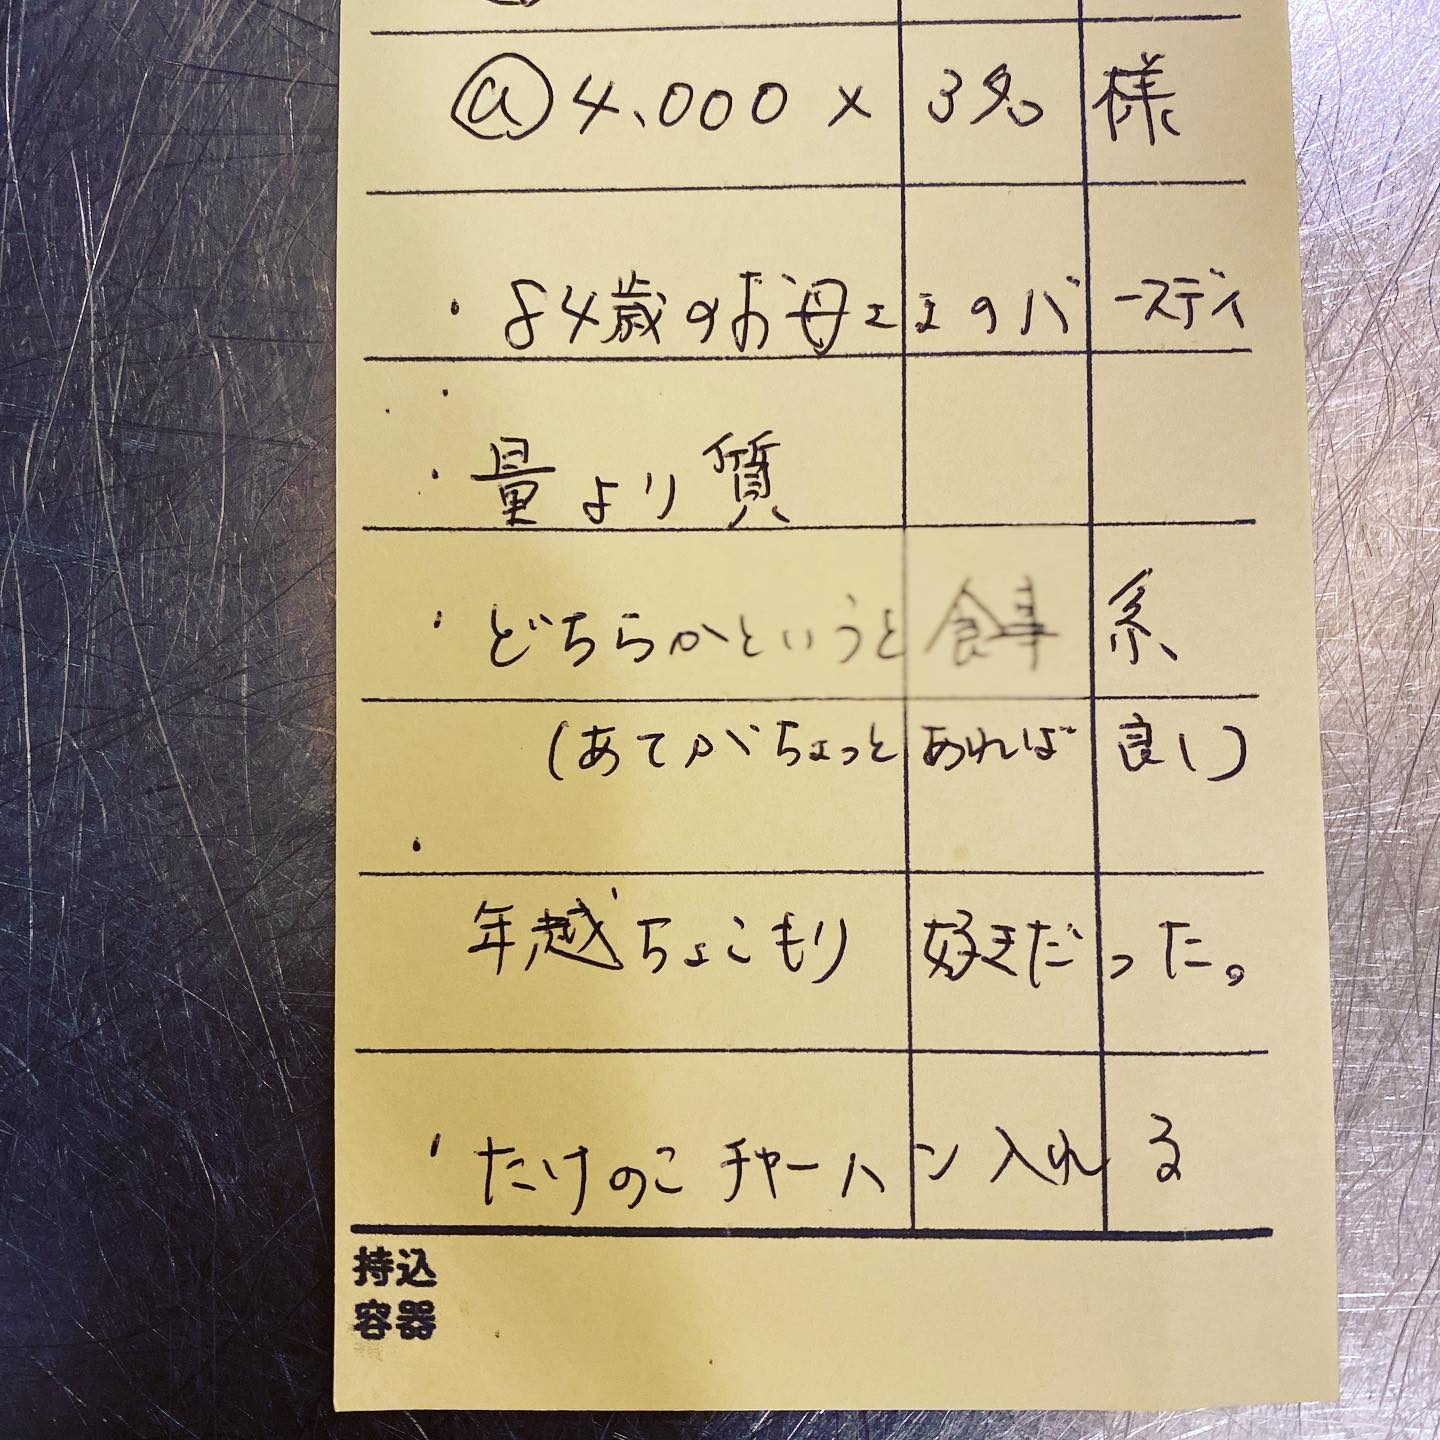 @4,000×3名様
・84歳のお母さまのバースディ
・量より質
・どちらかというと食事系
(あてがちょっとあれば良い)
年越ちょこもり 好きだった。
・たけのこチャーハン入れる
持込
容器